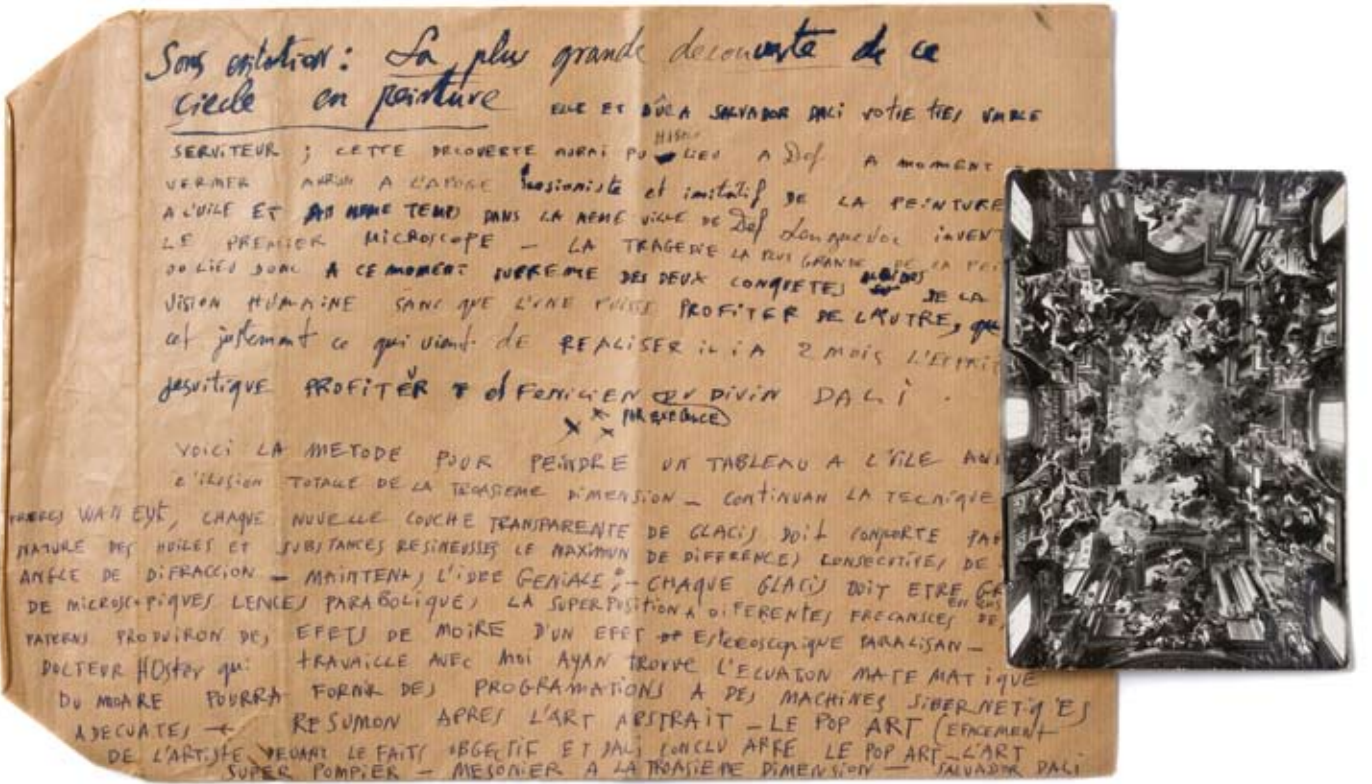 Sons esitation : La plus grande decouverte de ce
ciecle en peinture ELLE ET DÛE A SALVADOR DALI VOTRE TRES UMBLE
SERVITEUR ; CETTE DECOUVERTE AURAI PU LIEU A Def A MOMENT
VERMER ARRIVE A L'APOGE imitatif DE LA PEINTURE
A L'UILE ET AU MEME TEMPS DANS LA MEME VILLE DE Def INVENT
LE PREMIER MICROSCOPE — LA TRAGEDIE LA PLUS GRANDE DE LA
OU LIEU DONC A CE MOMENT SUPREME DES DEUX CONQUETES DE LA
VISION HUMAINE SANS QUE L'UNE PUISSE PROFITER DE L'AUTRE, que
cet justement ce qui vient DE REALISER IL I A 2 MOIS L'ESPRIT
jesuitique PROFITER et FENICIEN DU DIVIN DALI .
PAR EXELENCE
VOICI LA METODE POUR PEINDRE UN TABLEAU A L'UILE
L'ILUSION TOTALE DE LA TROASIEME DIMENSION — CONTINUAN LA TECNIQUE
FRERES WAN EYK, CHAQUE NUVELLE COUCHE TRANSPARENTE DE GLACIS DOIT CONPORTE PAR
NATURE DES HUILES ET SUBSTANCES RESINEUSSES LE MAXIMUN DE DIFFERENCES CONSECUTIVES DE
ANGLE DE DIFRACCION — MAINTENAN, L'IDEE GENIALE ; — CHAQUE GLACIS DOIT ETRE
DE MICROSCOPIQUES LENCES PARABOLIQUES, LA SUPERPOSITION A DIFERENTES FRECANSCES DES
PATERNS PRODUIRON DES EFETS DE MOIRE D'UN EFET ESTEREOSCOPIQUE PARALISAN —
DOCTEUR HOster qui TRAVAILLE AVEC MOI AYAN TROUVE L'ECUATON MATEMATIQUE
DU MOARE POURRA FORNIR DES PROGRAMATIONS A DES MACHINES SIBERNETIQ'ES
ADECUATES — RESUMON APRES L'ART ABSTRAIT — LE POP ART (EFACEMENT
DE L'ARTISTE DEVANT LE FAITS OBGECTIF ET DALI CONCLU APRE LE POP ART — L'ART
SUPER POMPIER — MESONIER A LA TROASIEME DIMENSION — SALVADOR DALI